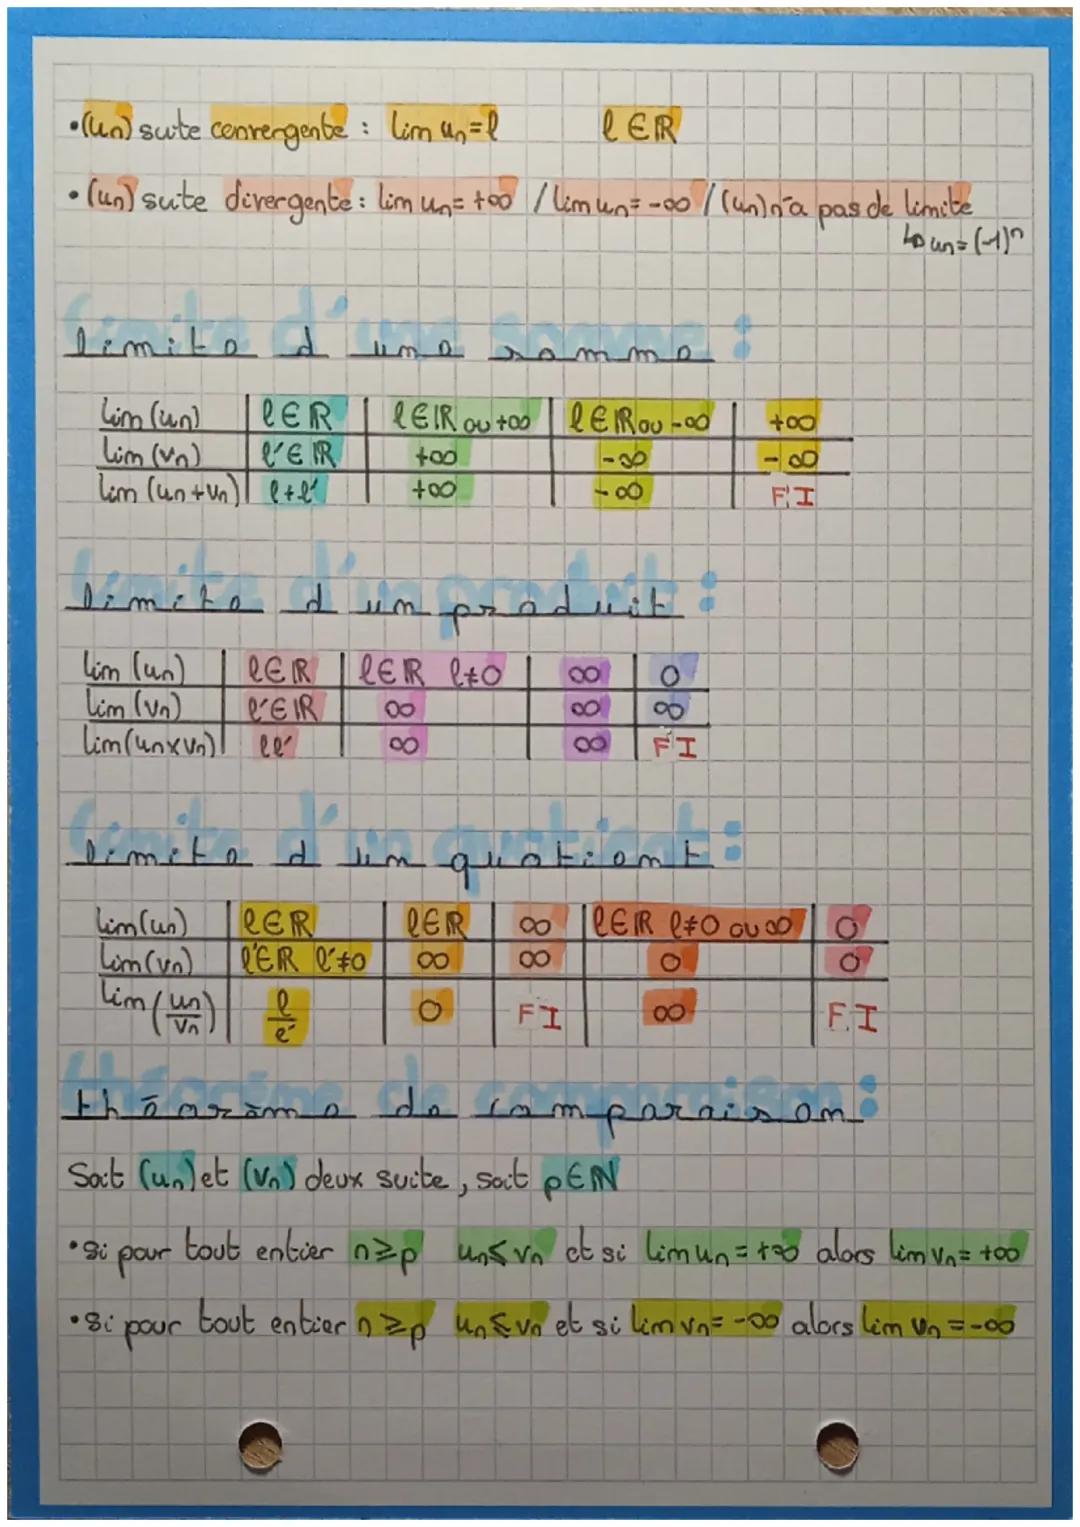 • (un) suite convergente : lim un = l l ∈ ℝ
• (un) suite divergente : lim un = +∞ / lim un = -∞ / (un) n'a pas de limite
↳ un = (-1)ⁿ
limite d'une somme :
lim (un) | l ∈ ℝ | l ∈ ℝ ou +∞ | l ∈ ℝ ou -∞ | +∞
lim (vn) | l' ∈ ℝ | +∞ | -∞ | -∞
lim (un + vn) | l + l' | +∞ | -∞ | F.I
limite d'un produit :
lim (un) | l ∈ ℝ | l ∈ ℝ l ≠ 0 | ∞ | 0
lim (vn) | l' ∈ ℝ | ∞ | ∞ | ∞
lim (un × vn) | ll' | ∞ | ∞ | F I
limite d'un quotient :
lim (un) | l ∈ ℝ | l ∈ ℝ | ∞ | l ∈ ℝ l ≠ 0 ou ∞ | 0
lim (vn) | l' ∈ ℝ l' ≠ 0 | ∞ | ∞ | 0 | 0
lim (un/vn) | l/l' | 0 | F I | ∞ | F.I
théorème de comparaison :
Soit (un) et (vn) deux suite, soit p ∈ ℕ
• Si pour tout entier n ≥ p un ≤ vn et si lim un = +∞ alors lim vn = +∞
• Si pour tout entier n ≥ p un ≤ vn et si lim vn = -∞ alors lim un = -∞